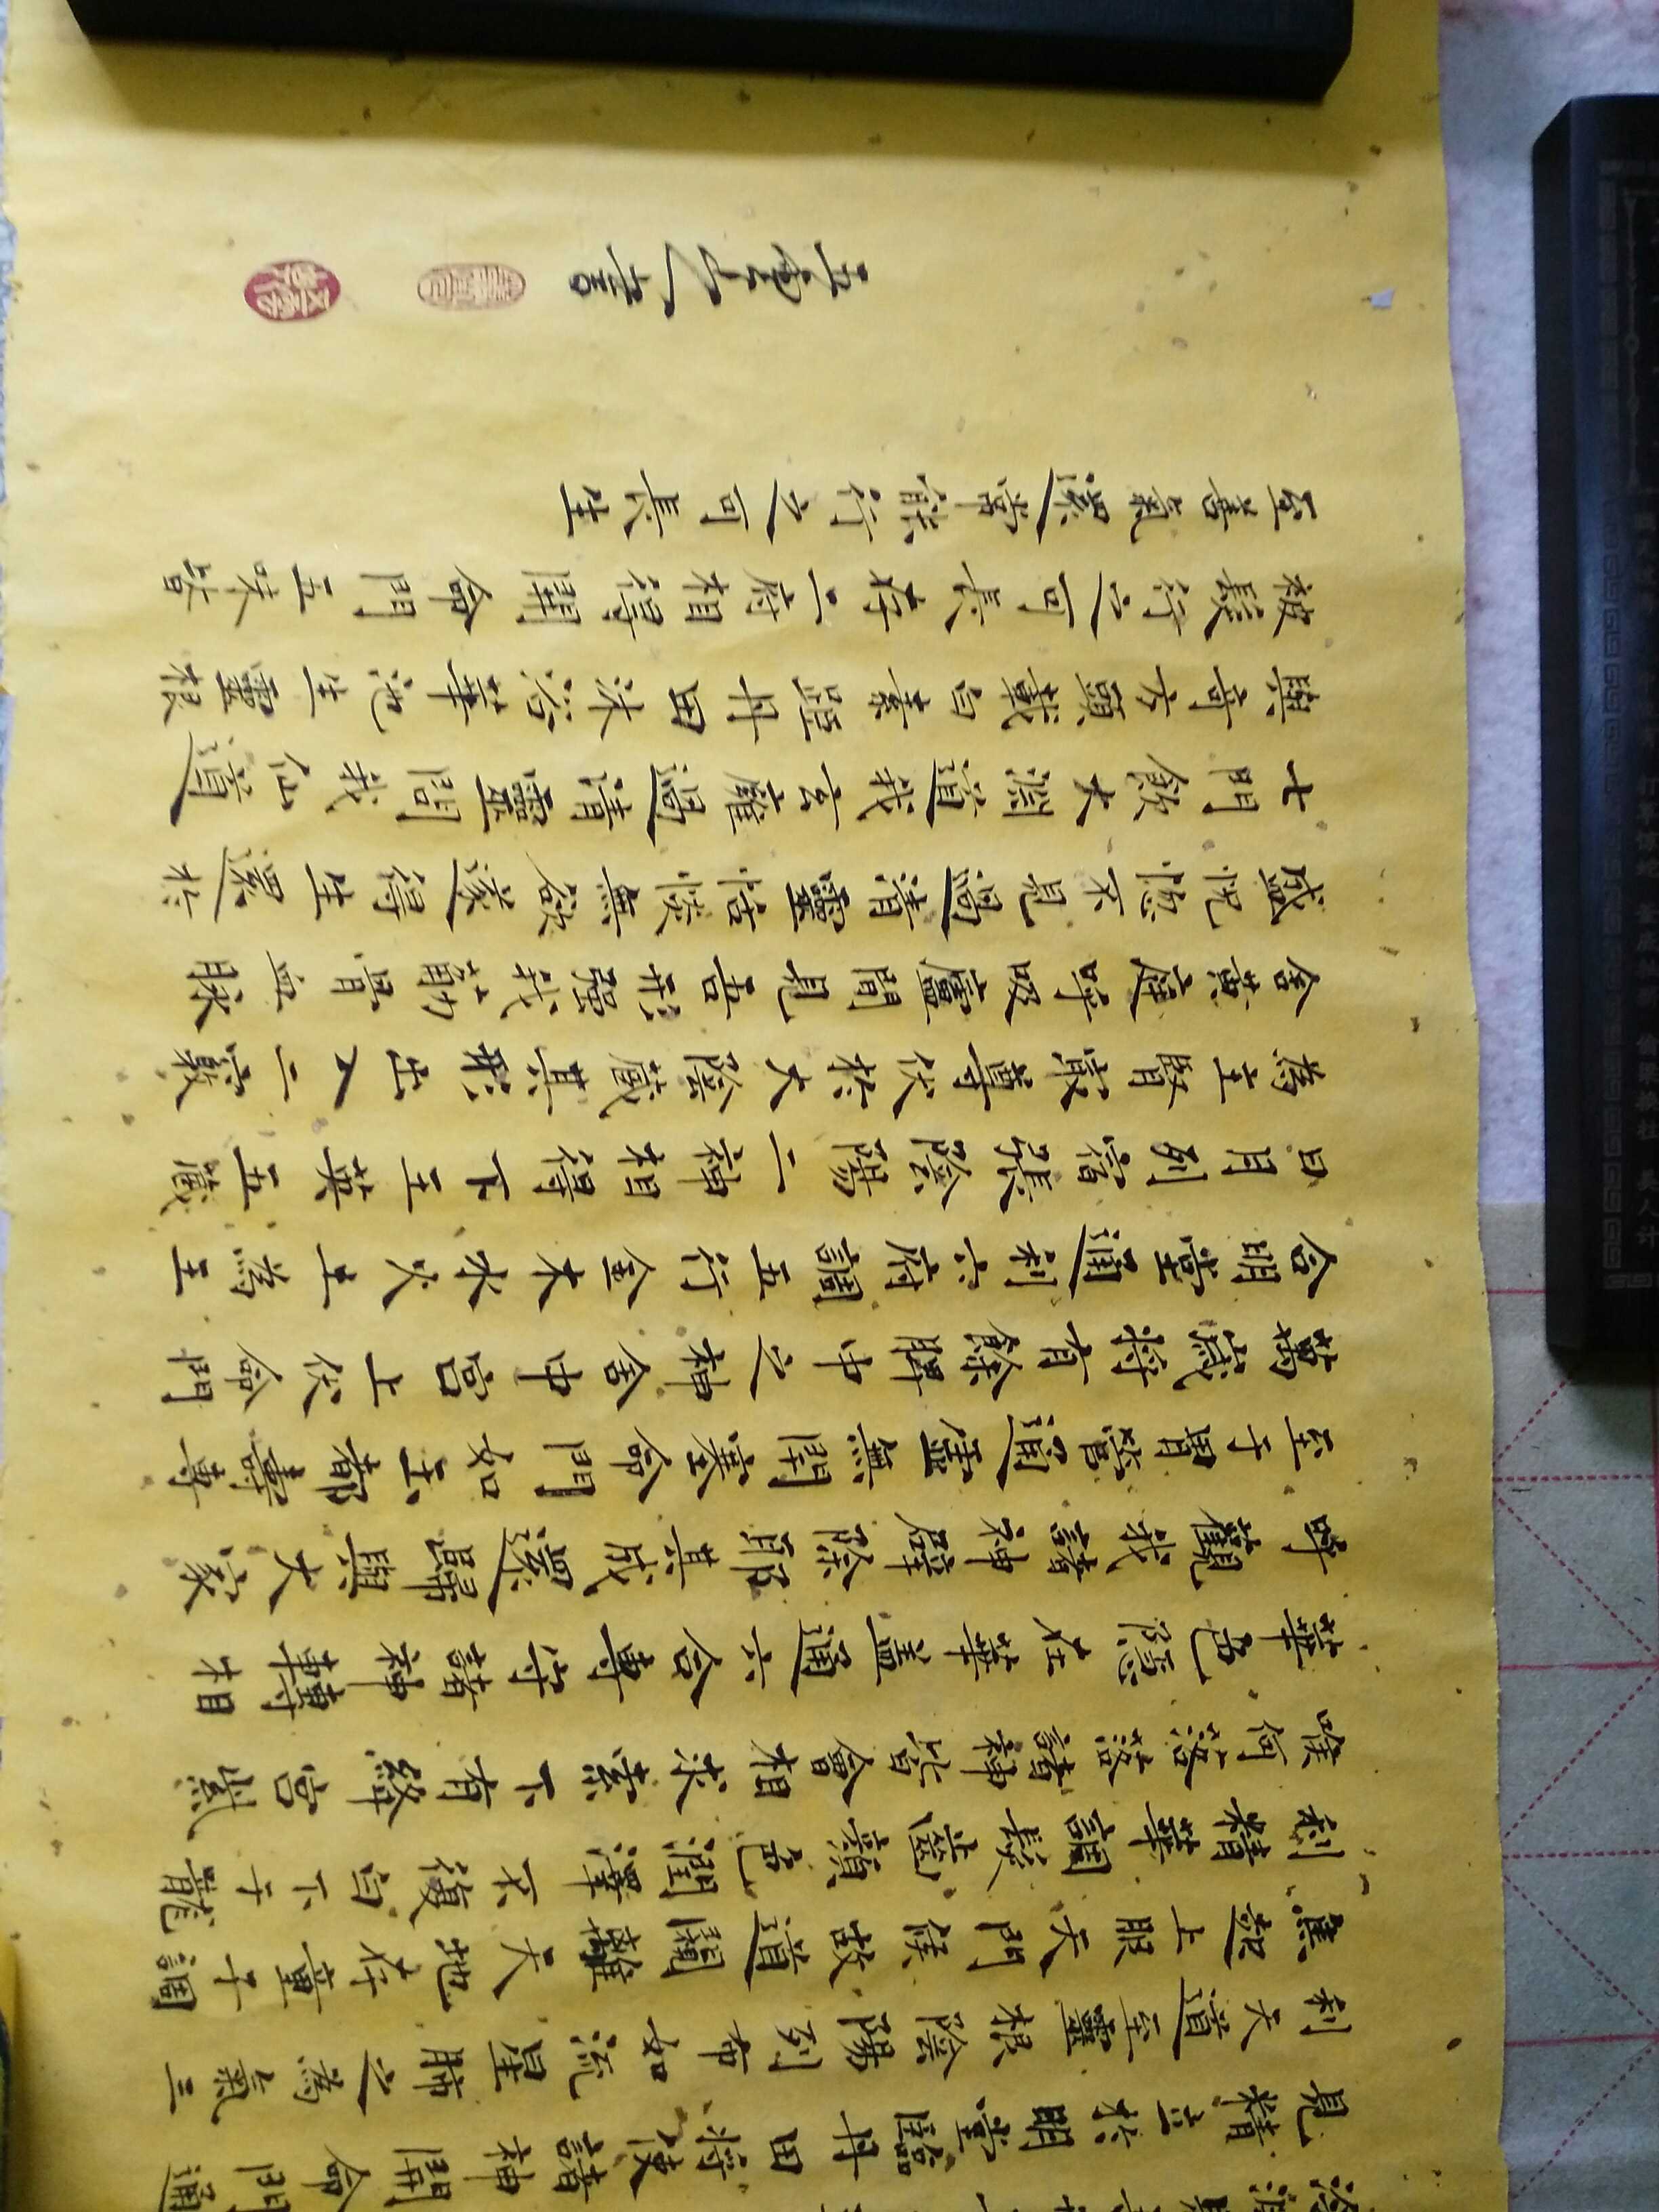 見精立於明堂臨丹田將使諸神開命門通
利天道至靈根陰陽列布如流星肺之為氣三
焦起上服天門候故道闚離天地存童子調
利精華調髮齒顏色潤澤不復白下于嚨
喉何落落諸神皆會相求索下有絳宮紫
華色隱在華蓋通六合專守諸神轉相
呼觀我諸神辟除耶其成還歸與大家
至于胃管通虛無閉塞命門如玉都壽專
萬歲將有餘脾中之神舍中宮上伏命門
合明堂通利六府調五行金木水火土為王
日月列宿張陰陽二神相得下玉英五藏
為主腎最尊伏於大陰藏其形出入二竅
舍黃庭呼吸廬間見吾形強我筋骨血脉
盛恍惚不見過清靈恬惔無欲遂得生還於
七門飲大淵道我玄廱過清靈問我仙道
與奇方頭載白素距丹田沐浴華池生靈根
被髮行之可長存二府相得開命門五味皆
至善氣還常能行之可長生